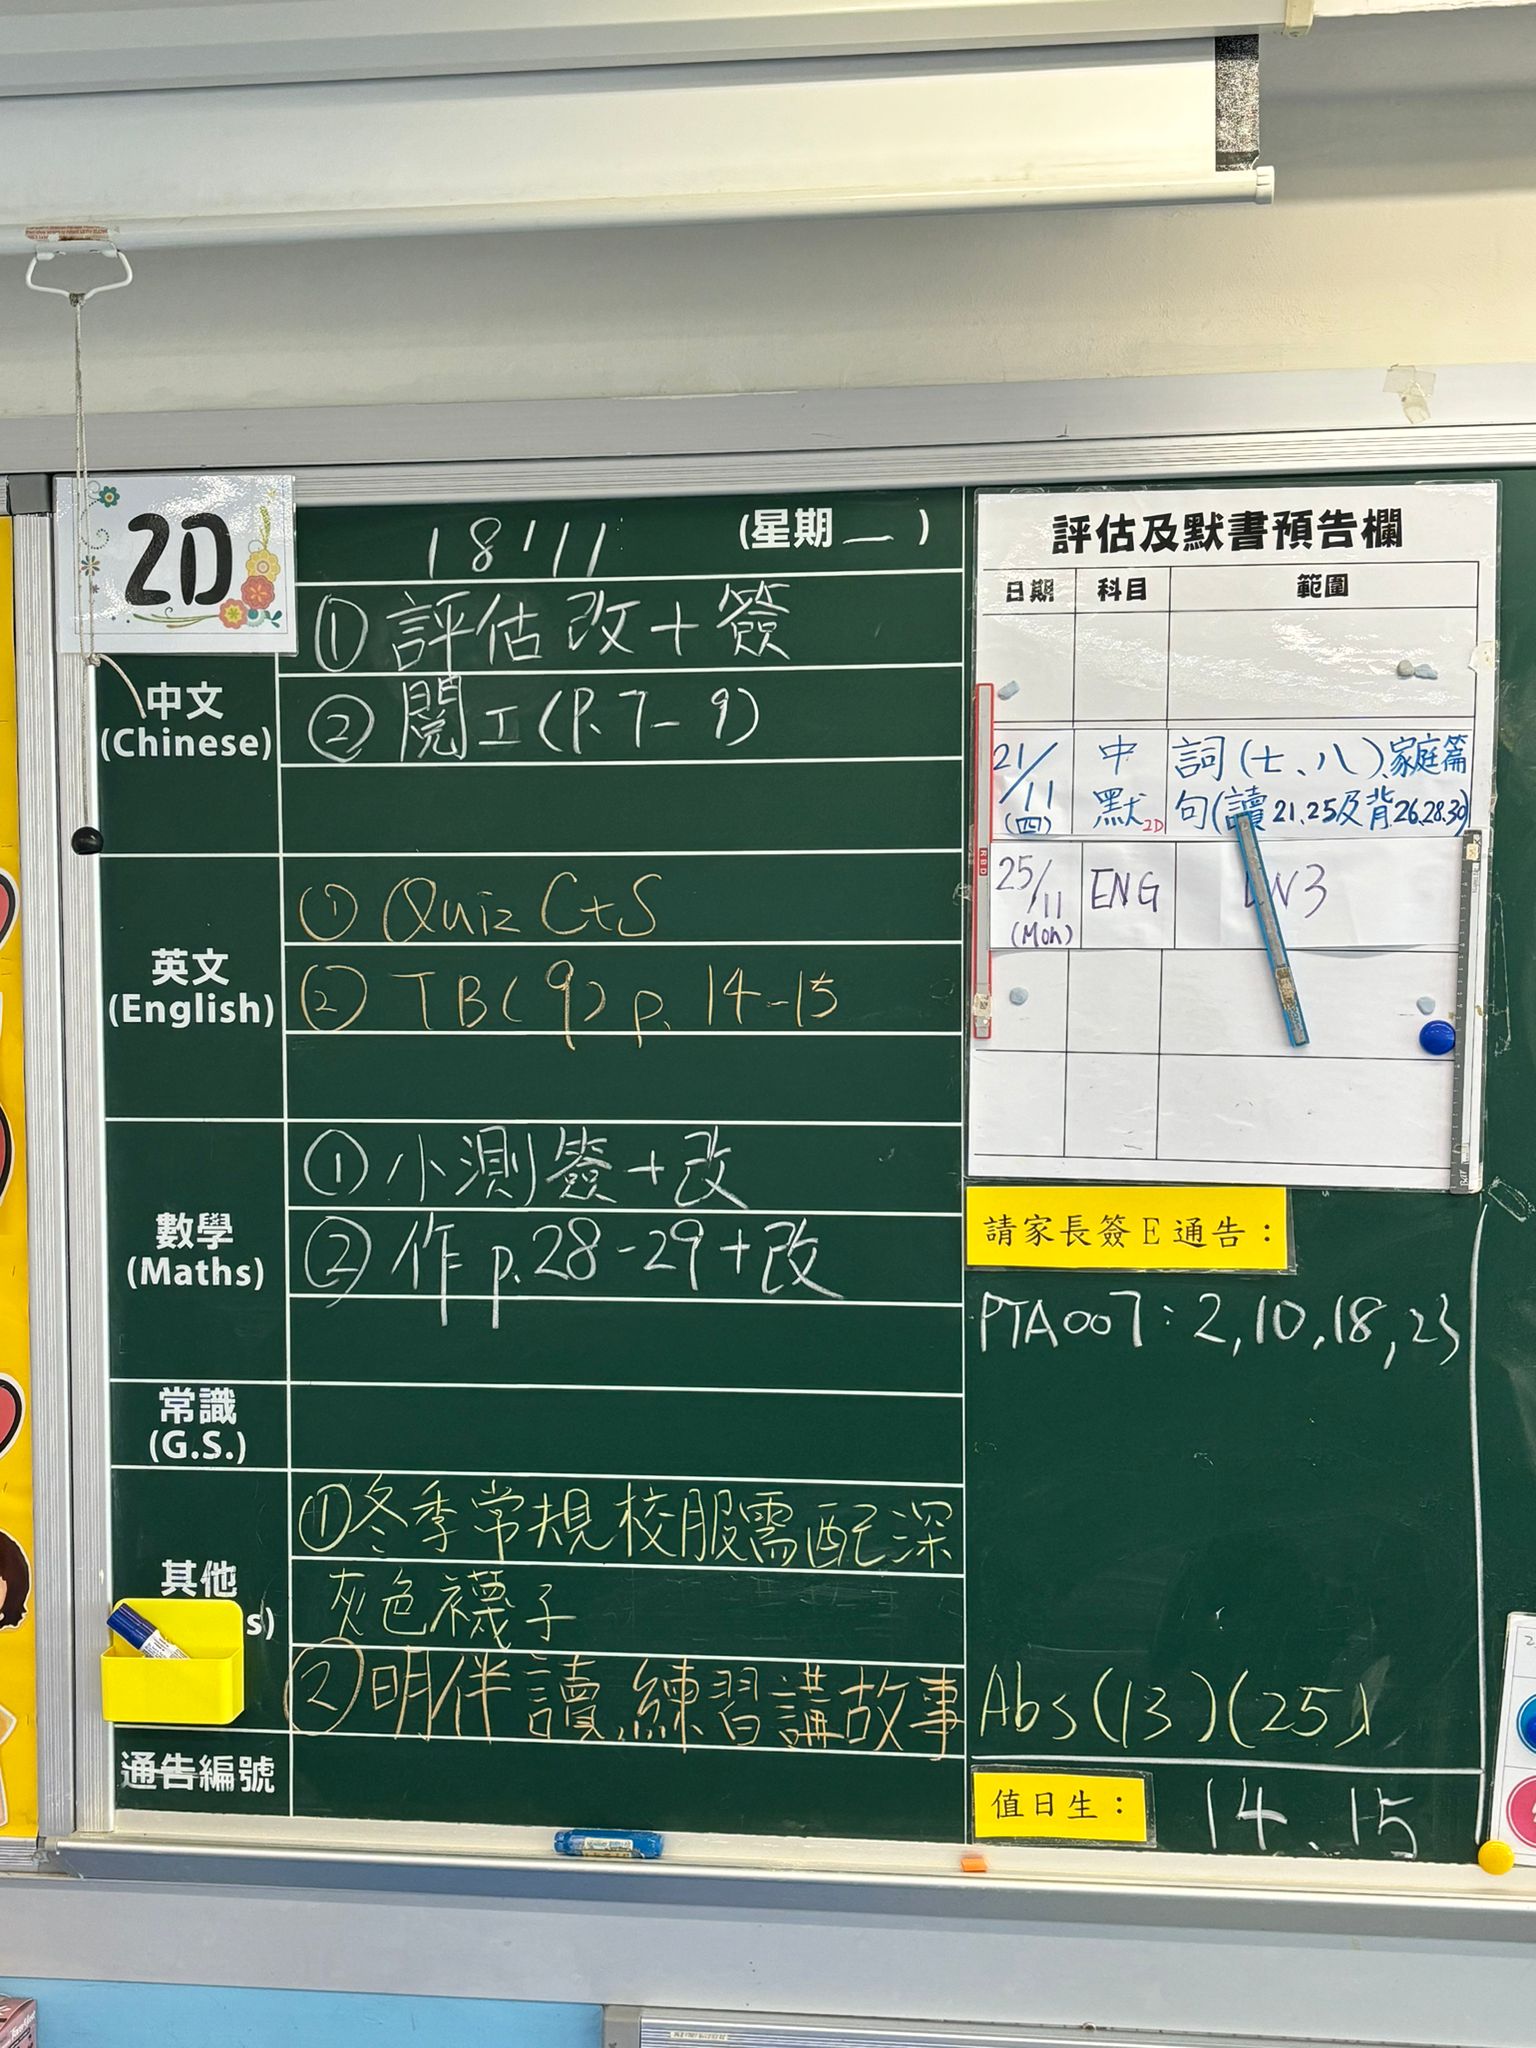 2D
18/11 (星期一)
中文
(Chinese)
① 評估改+簽
② 閱工(P.7-9)
英文
(English)
① Quiz C+S
② TB(9) p. 14-15
數學
(Maths)
① 小測簽+改
② 作 p.28-29+改
常識
(G.S.)
其他
s)
①冬季常規校服需配深
灰色襪子
②明伴讀,練習講故事
通告編號
評估及默書預告欄
日期 科目 範圍
21/11 (四) 中默 2D 詞(七、八)、家庭篇
句(讀21,25及背26,28,30)
25/11 (Mon) ENG 3
請家長簽E通告：
PTA007: 2,10,18,23
Abs(13)(25)
值日生： 14、15